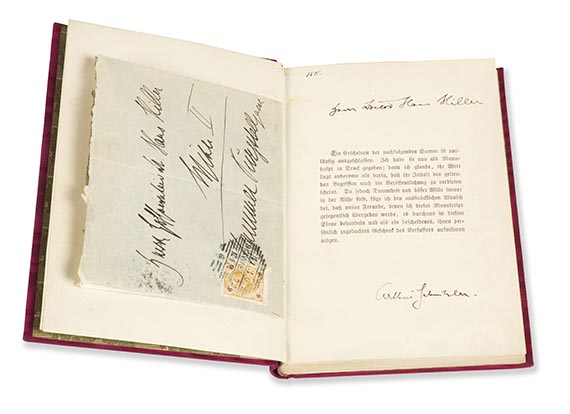 Hans Hiller
Wien II
188.
Herrn Hans Hiller
Ein Erscheinen der nachfolgenden Scenen ist vor-
läufig ausgeschlossen. Ich habe sie nun als Manu-
script in Druck gegeben; denn ich glaube, ihr Wert
liegt anderswo als darin, daß ihr Inhalt den gelten-
den Begriffen nach die Veröffentlichung zu verbieten
scheint. Da jedoch Dummheit und böser Wille immer
in der Nähe sind, füge ich den ausdrücklichen Wunsch
bei, daß meine Freunde, denen ich dieses Manuscript
gelegentlich übergeben werde, es durchaus in diesem
Sinne behandeln und als ein bescheidenes, ihnen per-
sönlich zugedachtes Geschenk des Verfassers aufnehmen
mögen.
Arthur Schnitzler.